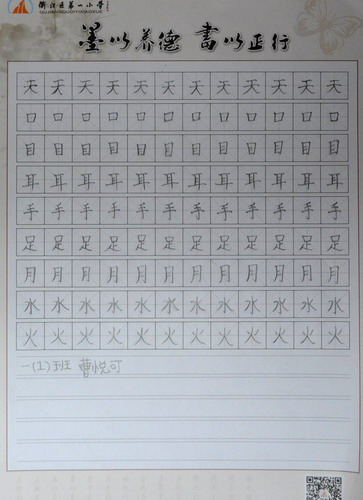 衢江区第一小学
墨以养德 書以正行
天天天天天天天天天天天天
口口口口口口口口口口口口
目目目目目目目目目目目目
耳耳耳耳耳耳耳耳耳耳耳耳
手手手手手手手手手手手手
足足足足足足足足足足足足
月月月月月月月月月月月月
水水水水水水水水水水水水
火火火火火火火火火火火火
一(1)班 曹悦可